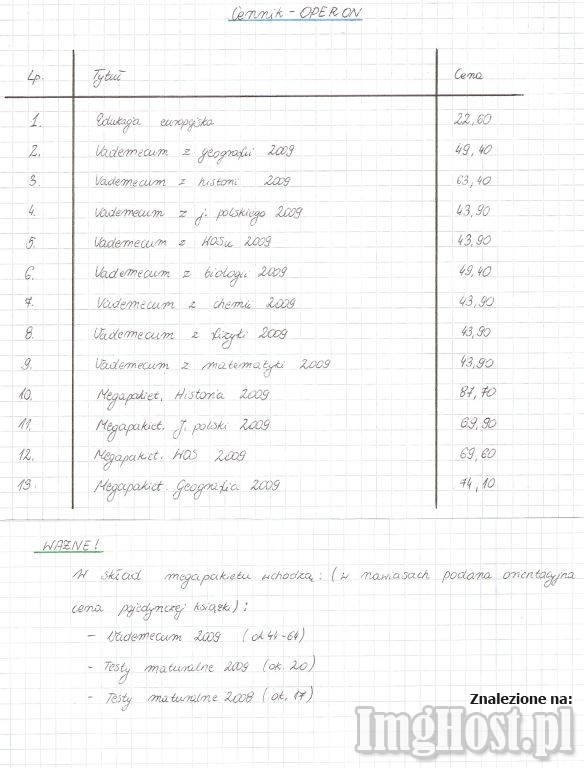 Cennik - OPERON
Lp. Tytuł Cena
1. Edukacja europejska 22,60
2. Vademecum z geografii 2009 49,40
3. Vademecum z historii 2009 63,40
4. Vademecum z j. polskiego 2009 43,90
5. Vademecum z WOSu 2009 43,90
6. Vademecum z biologii 2009 49,40
7. Vademecum z chemii 2009 43,90
8. Vademecum z fizyki 2009 43,90
9. Vademecum z matematyki 2009 43,90
10. Megapakiet. Historia 2009 87,70
11. Megapakiet. J. polski 2009 69,90
12. Megapakiet. WOS 2009 69,60
13. Megapakiet. Geografia 2009 74,10
WAŻNE!
W skład megapakietu wchodzą: (w nawiasach podana orientacyjna
cena pojedynczej książki):
- Vademecum 2009 (ok 44-64)
- Testy maturalne 2009 (ok. 20)
- Testy maturalne 2008 (ok. 17)
Znalezione na:
ImgHost.pl